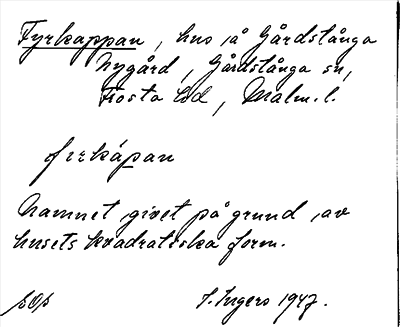 Fyrkappan, hus å Gårdstånga
Nygård, Gårdstånga sn,
Frosta hd, Malm. l.
fyrkápan
Namnet givet på grund av
husets kvadratiska form.
I. Ingers 1947.